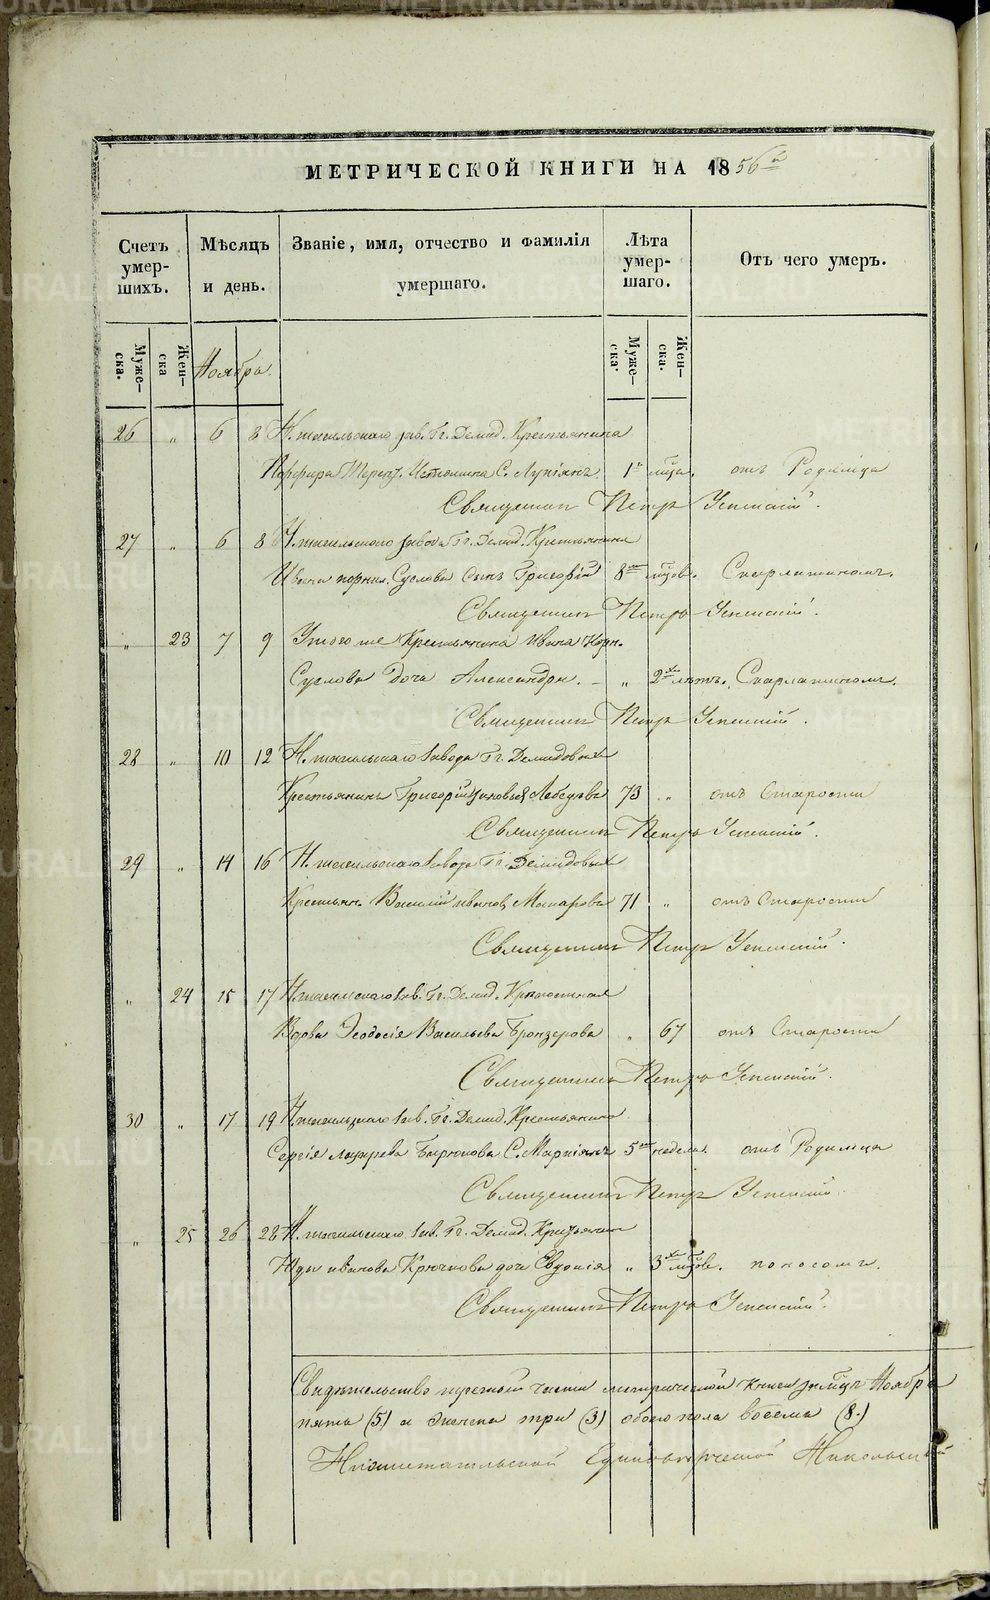 МЕТРИЧЕСКОЙ КНИГИ НА 1856й
Счетъ умер-шихъ.
Мѣсяцъ и день.
Званіе, имя, отчество и фамилія умершаго.
Лѣта умер-шаго.
Отъ чего умеръ.
Муже-ска.
Жен-ска
Ноябрь.
Муже-ска.
Жен-ска.
26 „ 6 8 Н. тагильскаго зав. Гг. Демид. Крестьянина
Порфира С. Лукіянъ 1 мца. отъ Родимца
Священникъ Петръ Успенскій.
27 „ 6 8 Н. тагильскаго завода Гг. Демид. Крестьянина
Ивана корнил. Суслова сынъ Григорій 8 мцов. Скарлатиною.
Священникъ Петръ Успенскій.
„ 23 7 9 Этого же Крестьянина Ивана Корн.
Суслова дочь Александра. – „ 2 лѣтъ. Скарлатиною.
Священникъ Петръ Успенскій.
28 „ 10 12 Н. тагильскаго завода Гг. Демидовых
Крестьянинъ Григорій Лебедевъ 73 „ отъ Старости
Священникъ Петръ Успенскій.
29 „ 14 16 Н. тагильскаго завода Гг. Демидовых
Крестьян. Василій иванов. Макаровъ 71 „ отъ Старости
Священникъ Петръ Успенскій.
„ 24 15 17 Н. тагильскаго зав. Гг. Демид.
Вдова Ѳеодосія Васильева Бронзерова „ 67 отъ Старости
Священникъ Петръ Успенскій.
30 „ 17 19 Н. тагильскаго зав. Гг. Демид. Крестьянина
Сергія лазарева Бирюкова С. Маркіянъ 5 недель. отъ Родимца
Священникъ Петръ Успенскій.
„ 25 26 28 Н. тагильскаго зав. Гг. Демид.
иванова Крючкова дочь Евдокія „ 3 мцов. поносомъ.
Священникъ Петръ Успенскій.
Свидѣтельство третьей части метрической книги за мцъ Ноябрь
пять (5) и женска три (3) обоего пола восемь (8.)
Нижнетагильской Единовѣрческой Никольской
METRIKI.GASO-URAL.RU